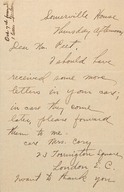 Somerville House
Thursday afternoon
Dear Mr Peet,
I should have
received some more
letters in your care.
in case they come
later please forward
them to me.
care Mrs. Corey
21 Torrington Square
London W.C.
I want to thank you